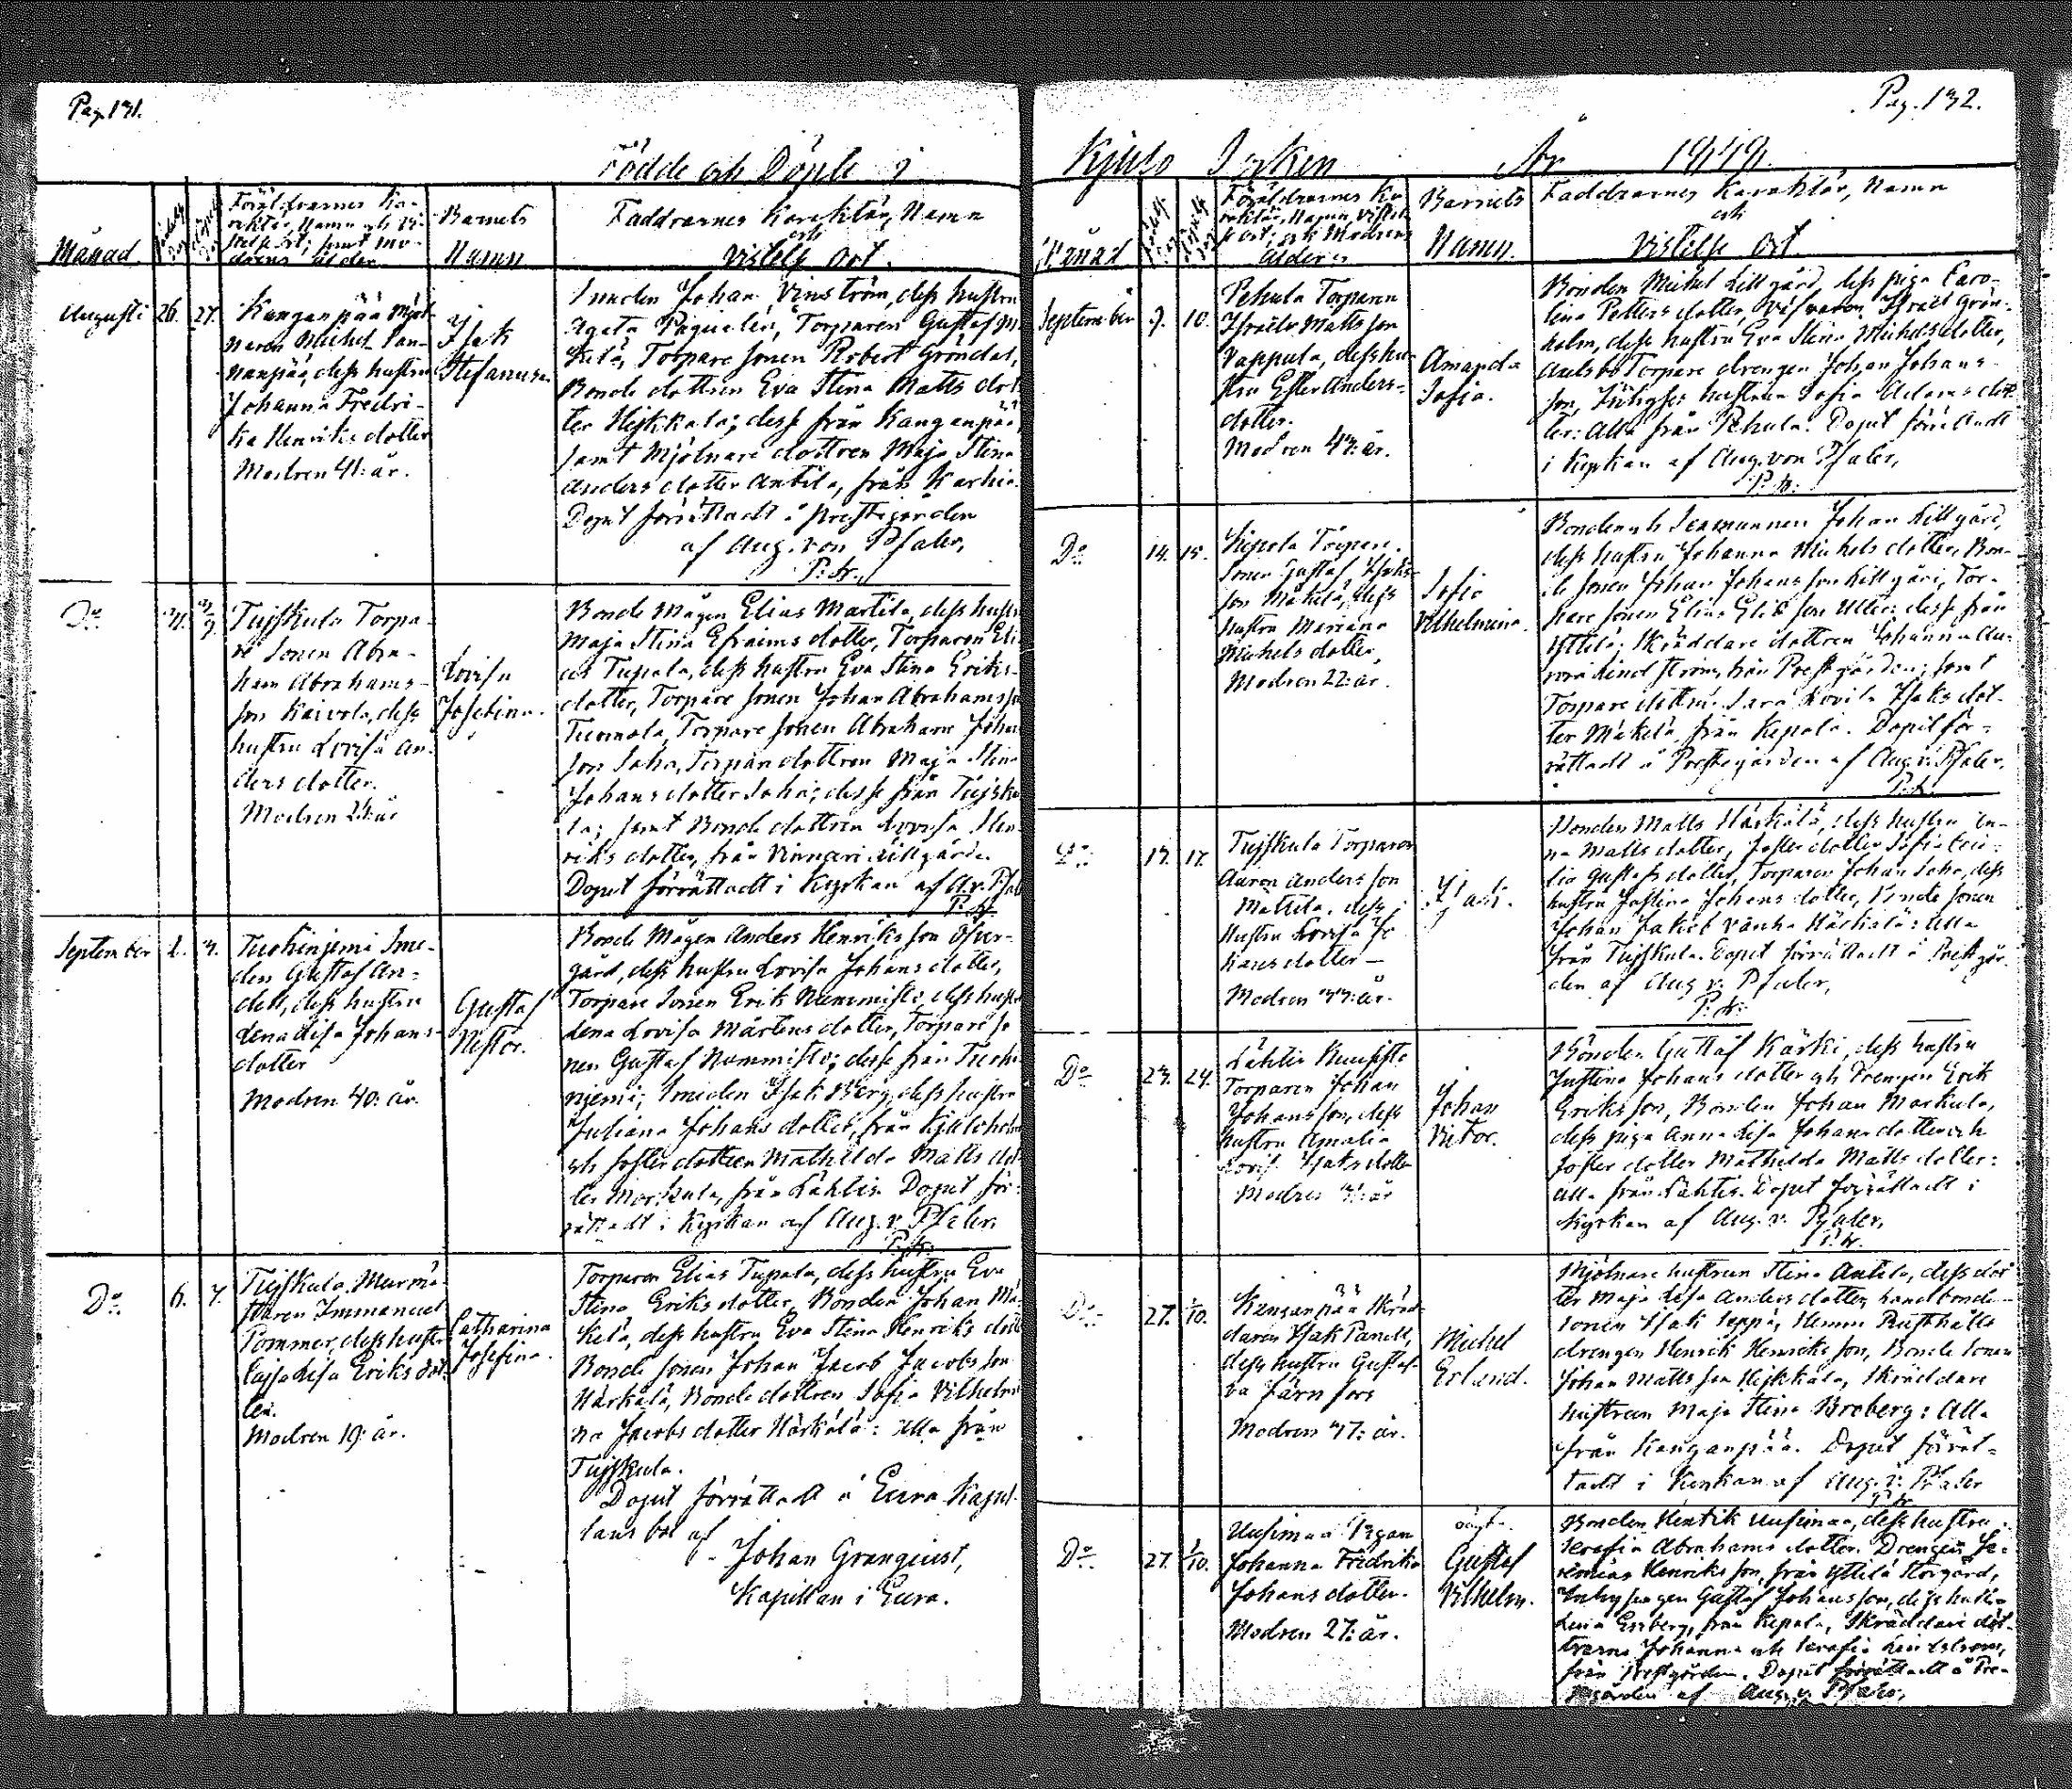 Pag. 131.
Födde och Döpte i
Månad
Föräldrarnes Ka-
raktär, Namn och Vi-
stelse ort; samt mo-
drens ålder
Barnets
Namn
Faddrarnes Karaktär, Namn
och
Vistelse Ort.
Augusti 26. 27.
Kanganpää Mjöl-
naren Michel Kan-
ganpää, dess hustru
Johanna Fredri-
ka Henriks dotter
Modren 41: år.
Isak
Stefanus.
Smeden Johan Vinström, dess hustru
Agata Torparen Gustaf M
Torpare sonen Robert Gröndal,
Bonde dottren Eva Stina Matts dot
ter Hejkkala; desse från Kanganpää,
samt Mjölnare dottren Maja Stina
Anders dotter Antila, från Karhia.
Doput förrättadt å Prestgården
af Aug. von Pfaler,
P: hr.
Do
Tujskula Torpa-
re Sonen Abra-
ham Abrahams-
son Kaivola, dess
hustru Lovisa An-
ders dotter.
Modren 24: år
Lovisa
Josefina.
Bonde Mågen Elias Martila, dess hustr
Maja Stina Efraims dotter, Torparen Eli
as Tupala, dess hustru Eva Stina Eriks-
dotter, Torpare sonen Johan Abrahamsso
Tuomola, Torpare sonen Abraham Johan
son Saha, Torpar dottren Maja Stina
Johans dotter Saha; desse från Tujsku
la; samt Bonde dottren Lovisa Hen-
riks dotter, från Vinnari Lillgård.
Doput förrättadt i Kyrkan af A. v. Pfal
P. hr.
September 2. 3.
Tuohinjemi Sme-
den Gustaf An-
dell, dess hustru
Lena Lisa Johans-
dotter
Modren 40: år.
Gustaf
Nestor.
Bonde Mågen Anders Henriks son Öfver-
gård, dess hustru Lovisa Johans dotter,
Torpare Sonen Erik Nummisto, dess hust
Lena Lovisa Mårtens dotter, Torpare so
nen Gustaf Nummisto; desse från Tuohi
njemi; Smeden Isak Berg, dess hustru
Juliana Johans dotter, från Kjuloholm
och foster dottren Mathilda Matts dot
ter Markula, från Lähtis. Doput för-
rättadt i Kyrkan af Aug. v. Pfaler.
P. hr.
Do 6. 7.
Tujskula Murmä-
staren Immanuel
Pommer, dess hustru
Cajsa Lisa Eriks dot-
ter.
Modren 19: år.
Catharina
Josefina.
Torparen Elias Tupala, dess hustru Eva
Stina Eriks dotter, Bonden Johan Mä-
kelä, dess hustru Eva Stina Henriks dott
Bonde Sonen Johan Jacob Jacobs son
Härkälä, Bonde dottren Sofia Vilhelmi
na Jacobs dotter Härkälä: Alla från
Tujskula.
Doput förrättadt å Eura Kapel-
lans bol af
Johan Granqvist,
Kapellan i Eura.
Pag. 132.
Kjulo Socken År 1849.
Månad
Föräldrarnes Ka
raktär, Namn, Vistel
se ort, och Modrens
ålder
Barnets
Namn.
Faddrarnes Karaktär, Namn
och
Vistelse ort.
September 9. 10.
Pehula Torparen
Israel Matts son
Vappula, dess hu-
stru Ester Anders-
dotter.
Modren 43: år.
Amanda
Sofia.
Bonden Michel Lillgård, dess piga Caro-
lina Petters dotter, Israel Grön-
holm, dess hustru Eva Stina Michels dotter,
Torpare drengen Johan Johans-
son, hustrun Sofia Adams dot-
ter: Alla från Pehula. Doput förrättadt
i Kyrkan af Aug. von Pfaler,
P. hr.
Do 14. 15.
Kepola Torpare-
Sonen Gustaf Isaks-
son Mäkelä, dess
hustru Mariana
Michels dotter,
Modren 22: år.
Sofia
Vilhelmina.
Bonden och Sexmannen Johan Lillgård,
dess hustru Johanna Michels dotter, Bon-
de sonen Johan Johans son Lillgård, Tor-
pare sonen Elias Elias son desse från
Yttilä; Skräddare dottren Johanna Au-
rora Lindström, från Prestgården; samt
Torpare dottren Sara Lovisa Isaks dot-
ter Mäkelä, från Kepola. Doput för-
rättadt å Prestgården af Aug. v. Pfaler,
P. hr.
Do 17.
Tujskula Torparen
Aaron Anders son
Mattila, dess
Hustru Lovisa Jo
hans dotter —
Modren 33: år.
Bonden Matts Härkälä, dess hustru An-
na Matts dotter, foster dotter Sofia Ceci-
lia Gustafs dotter, Torparen Johan Saha, dess
hustru Justina Johans dotter, Bonde sonen
Johan Jakob Vanha Härkälä: Alla
från Tujskula. Doput förrättadt å Prestgår-
den af Aug. v. Pfaler,
P. hr.
Do 23. 24.
Lähtis
Torparen Johan
Johans son, dess
hustru Amalia
Lovisa Isaks dotter
Modren 31: år
Johan
Victor.
Bonden Gustaf Kärki, dess hustru
Justina Johans dotter och Drengen Erik
Eriks son, Bonden Johan Markula,
dess piga Anna Lisa Johans dotter och
foster dotter Mathilda Matts dotter:
Alla från Lähtis. Doput förrättadt i
Kyrkan af Aug. v. Pfaler,
P. hr.
Do 27. 1/10.
Kanganpää Skräd-
daren Isak Panell,
dess hustru Gusta-
va Färnfors
Modren 37: år.
Michel
Erland.
Mjölnare hustrun Stina Antila, dess dot
ter Maja Lisa Anders dotter, Landbonde-
sonen Isak Seppä, Hemm Rusthålls
drengen Henrik Henriks son, Bonde Sonen
Johan Matts son Hejkkala, Skräddare
hustrun Maja Stina Broberg: Alla
från Kanganpää. Doput förrät-
tadt i Kyrkan af Aug. v. Pfaler
P. hr.
Do 27. 1/10.
Uusimaa Pigan
Johanna Fredrika
Johans dotter.
Modren 27: år.
oägta.
Gustaf
Vilhelm.
Bonden Henrik Uusimaa, dess hustru
Serafia Abrahams dotter. Drengen Je-
remias Henriks son, från Yttilä Storgård,
Inhysingen Gustaf Johans son, dess hustru
Lena Enberg, från Kepola, Skräddare döt-
trarna Johanna och Serafia Lindström,
från Prestgården. Doput förrättadt å Pre-
stgården af Aug. v. Pfaler,